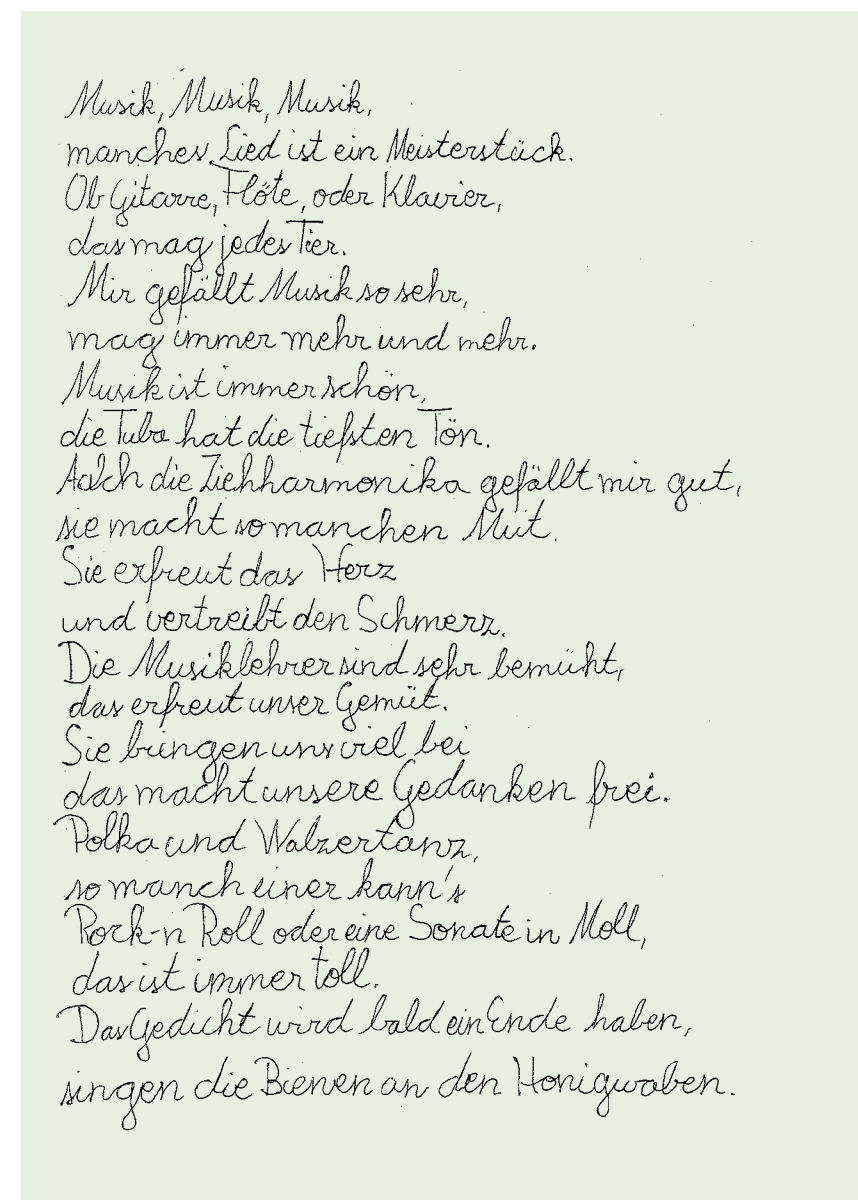 Musik, Musik, Musik,
manches Lied ist ein Meisterstück.
Ob Gitarre, Flöte, oder Klavier,
das mag jedes Tier.
Mir gefällt Musik so sehr,
mag immer mehr und mehr.
Musik ist immer schön,
die Tuba hat die tiefsten Tön.
Auch die Ziehharmonika gefällt mir gut,
sie macht so manchen Mut.
Sie erfreut das Herz
und vertreibt den Schmerz.
Die Musiklehrer sind sehr bemüht,
das erfreut unser Gemüt.
Sie bringen uns viel bei
das macht unsere Gedanken frei.
Polka und Walzertanz,
so manch einer kann's
Rock-n Roll oder eine Sonate in Moll,
das ist immer toll.
Das Gedicht wird bald ein Ende haben,
singen die Bienen an den Honigwaben.